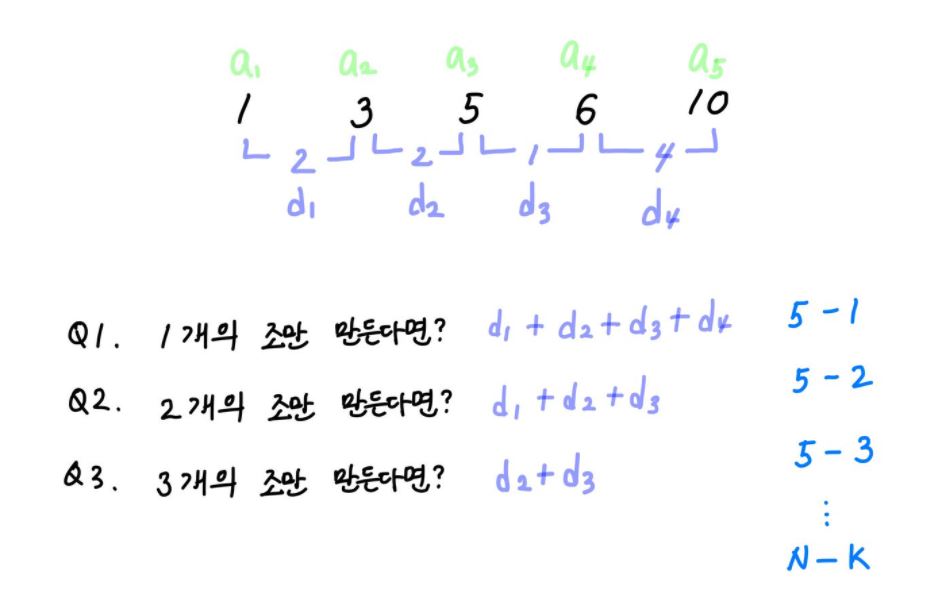 a₁ a₂ a₃ a₄ a₅
1 3 5 6 10
2 2 1 4
d₁ d₂ d₃ d₄
Q1. 1개의 조만 만든다면? d₁ + d₂ + d₃ + d₄ 5 - 1
Q2. 2개의 조만 만든다면? d₁ + d₂ + d₃ 5 - 2
Q3. 3개의 조만 만든다면? d₂ + d₃ 5 - 3
⋮
N - K